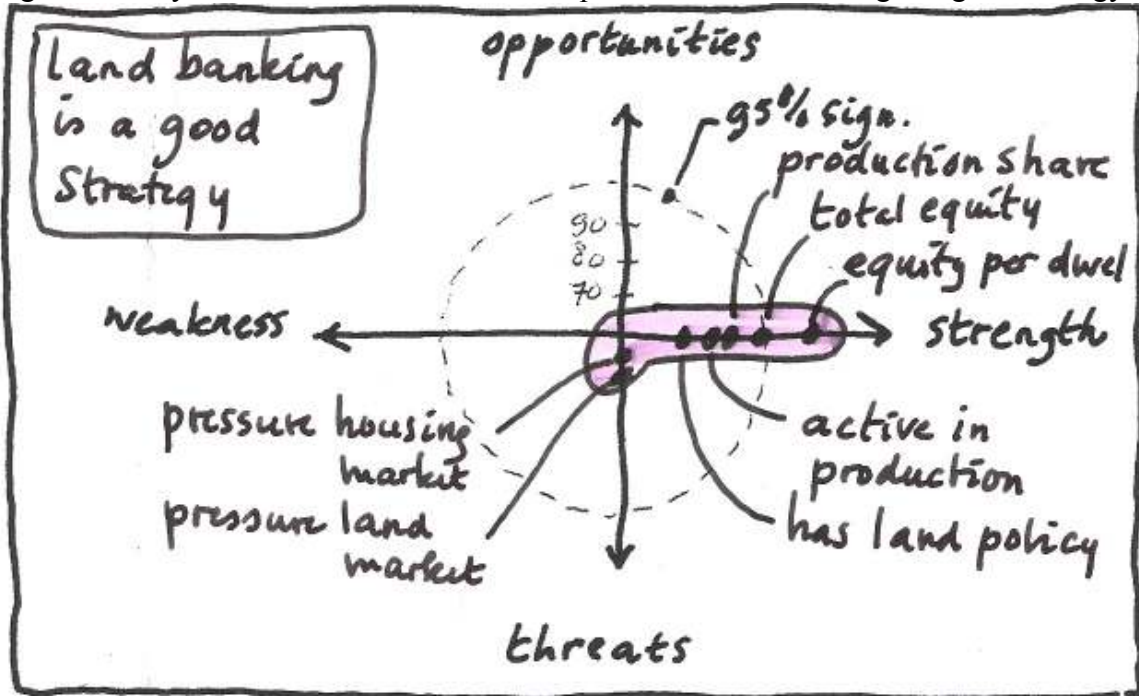 land banking
is a good
Strategy
opportunities
95% sign.
production share
total equity
equity per dwel
90
80
70
weakness
strength
pressure housing
market
pressure land
market
active in
production
has land policy
threats